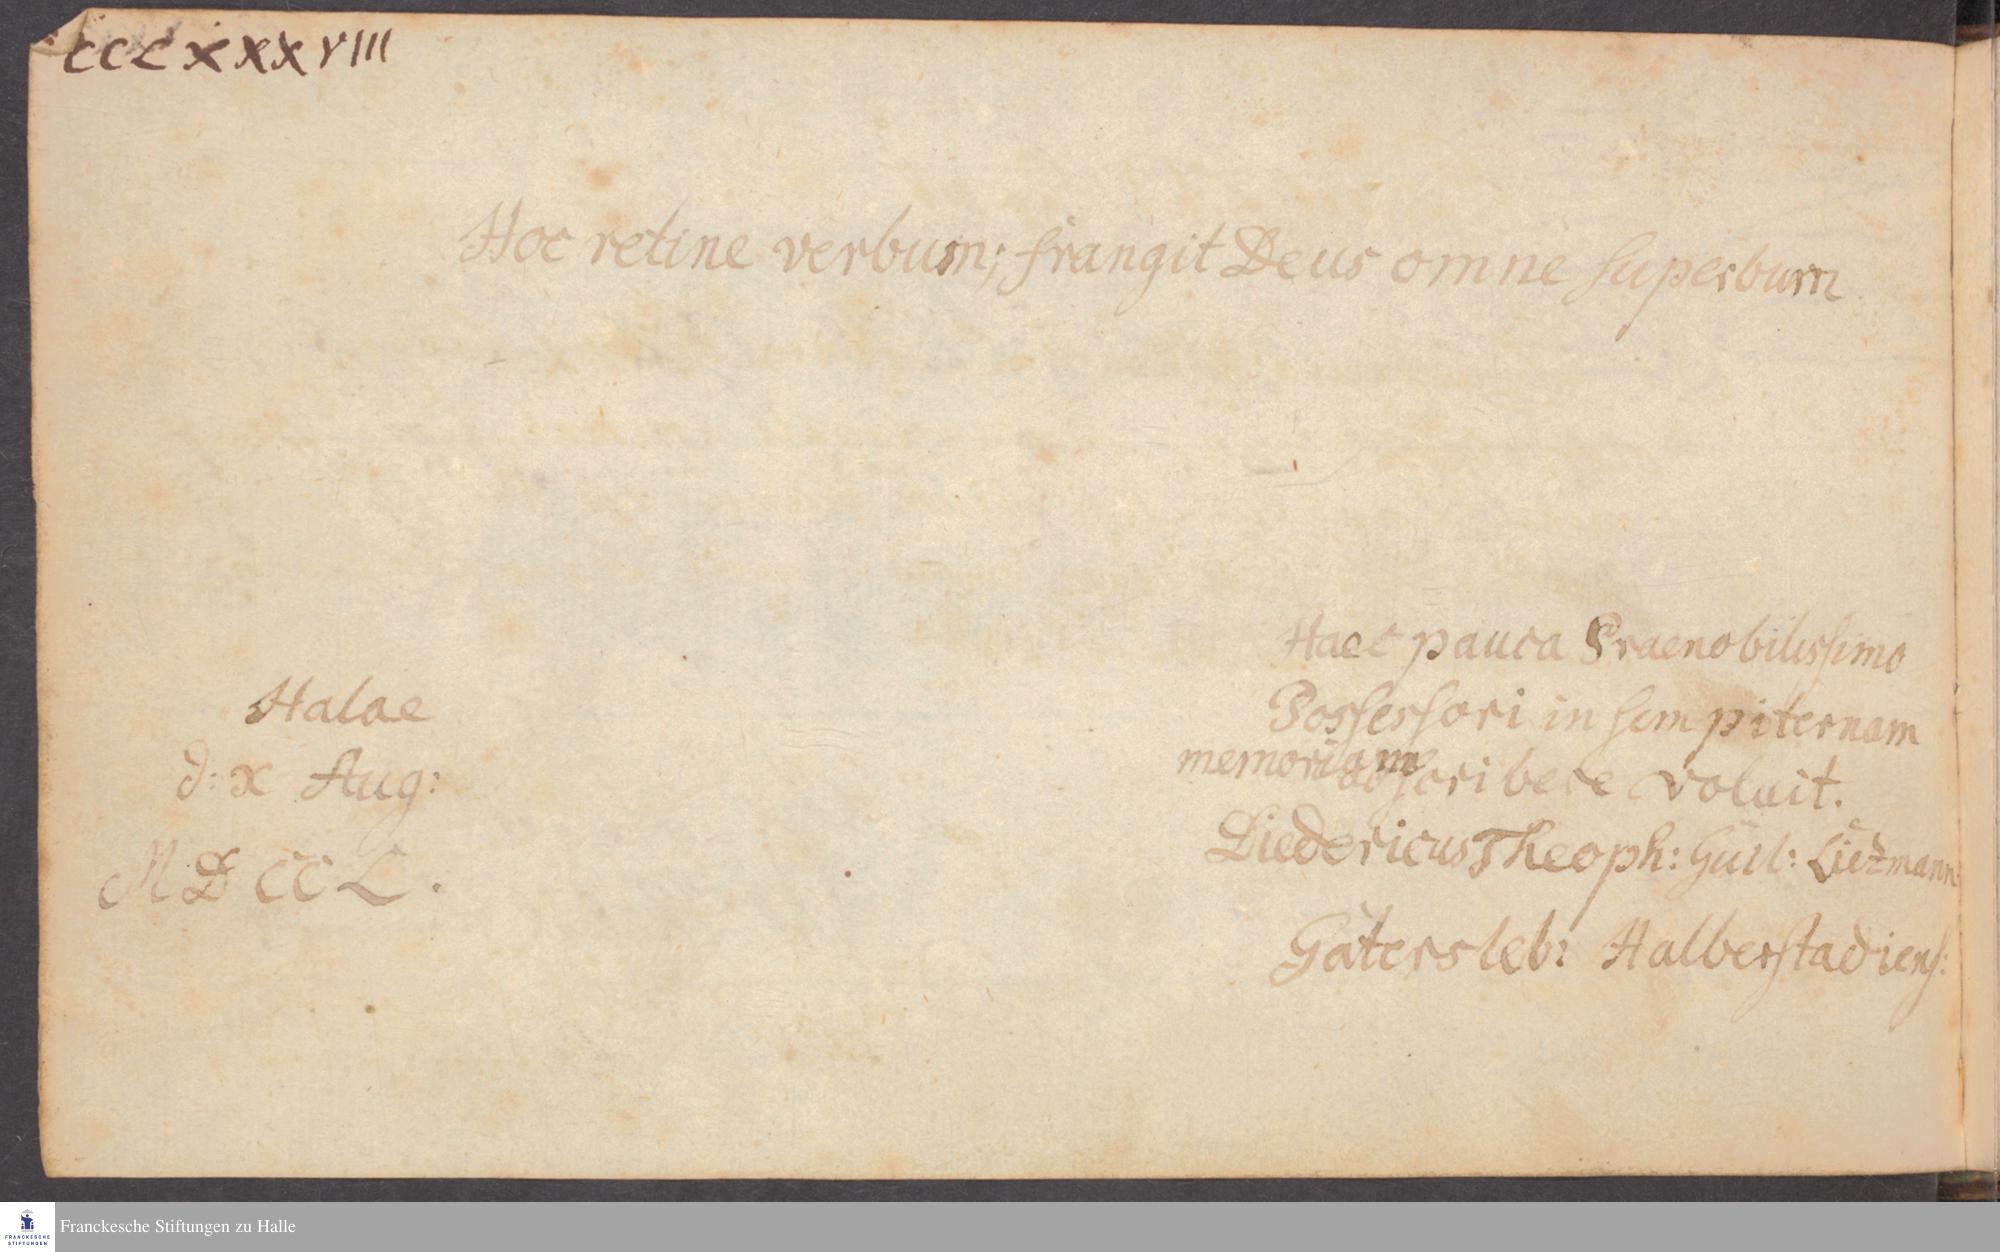 CCCXXXVIII
Hoc retine verbum; frangit Deus omne superbum
Haec pauca Praenobilissimo
Possessori in sempiternam
memoriam
adscribere voluit.
Diedericus Theoph: Guil: Lietzmann
Gatersleb: Halberstadiens:
Halae
d: x Aug:
MDCCL.
Franckesche Stiftungen zu Halle
FRANCKESCHE
STIFTUNGEN